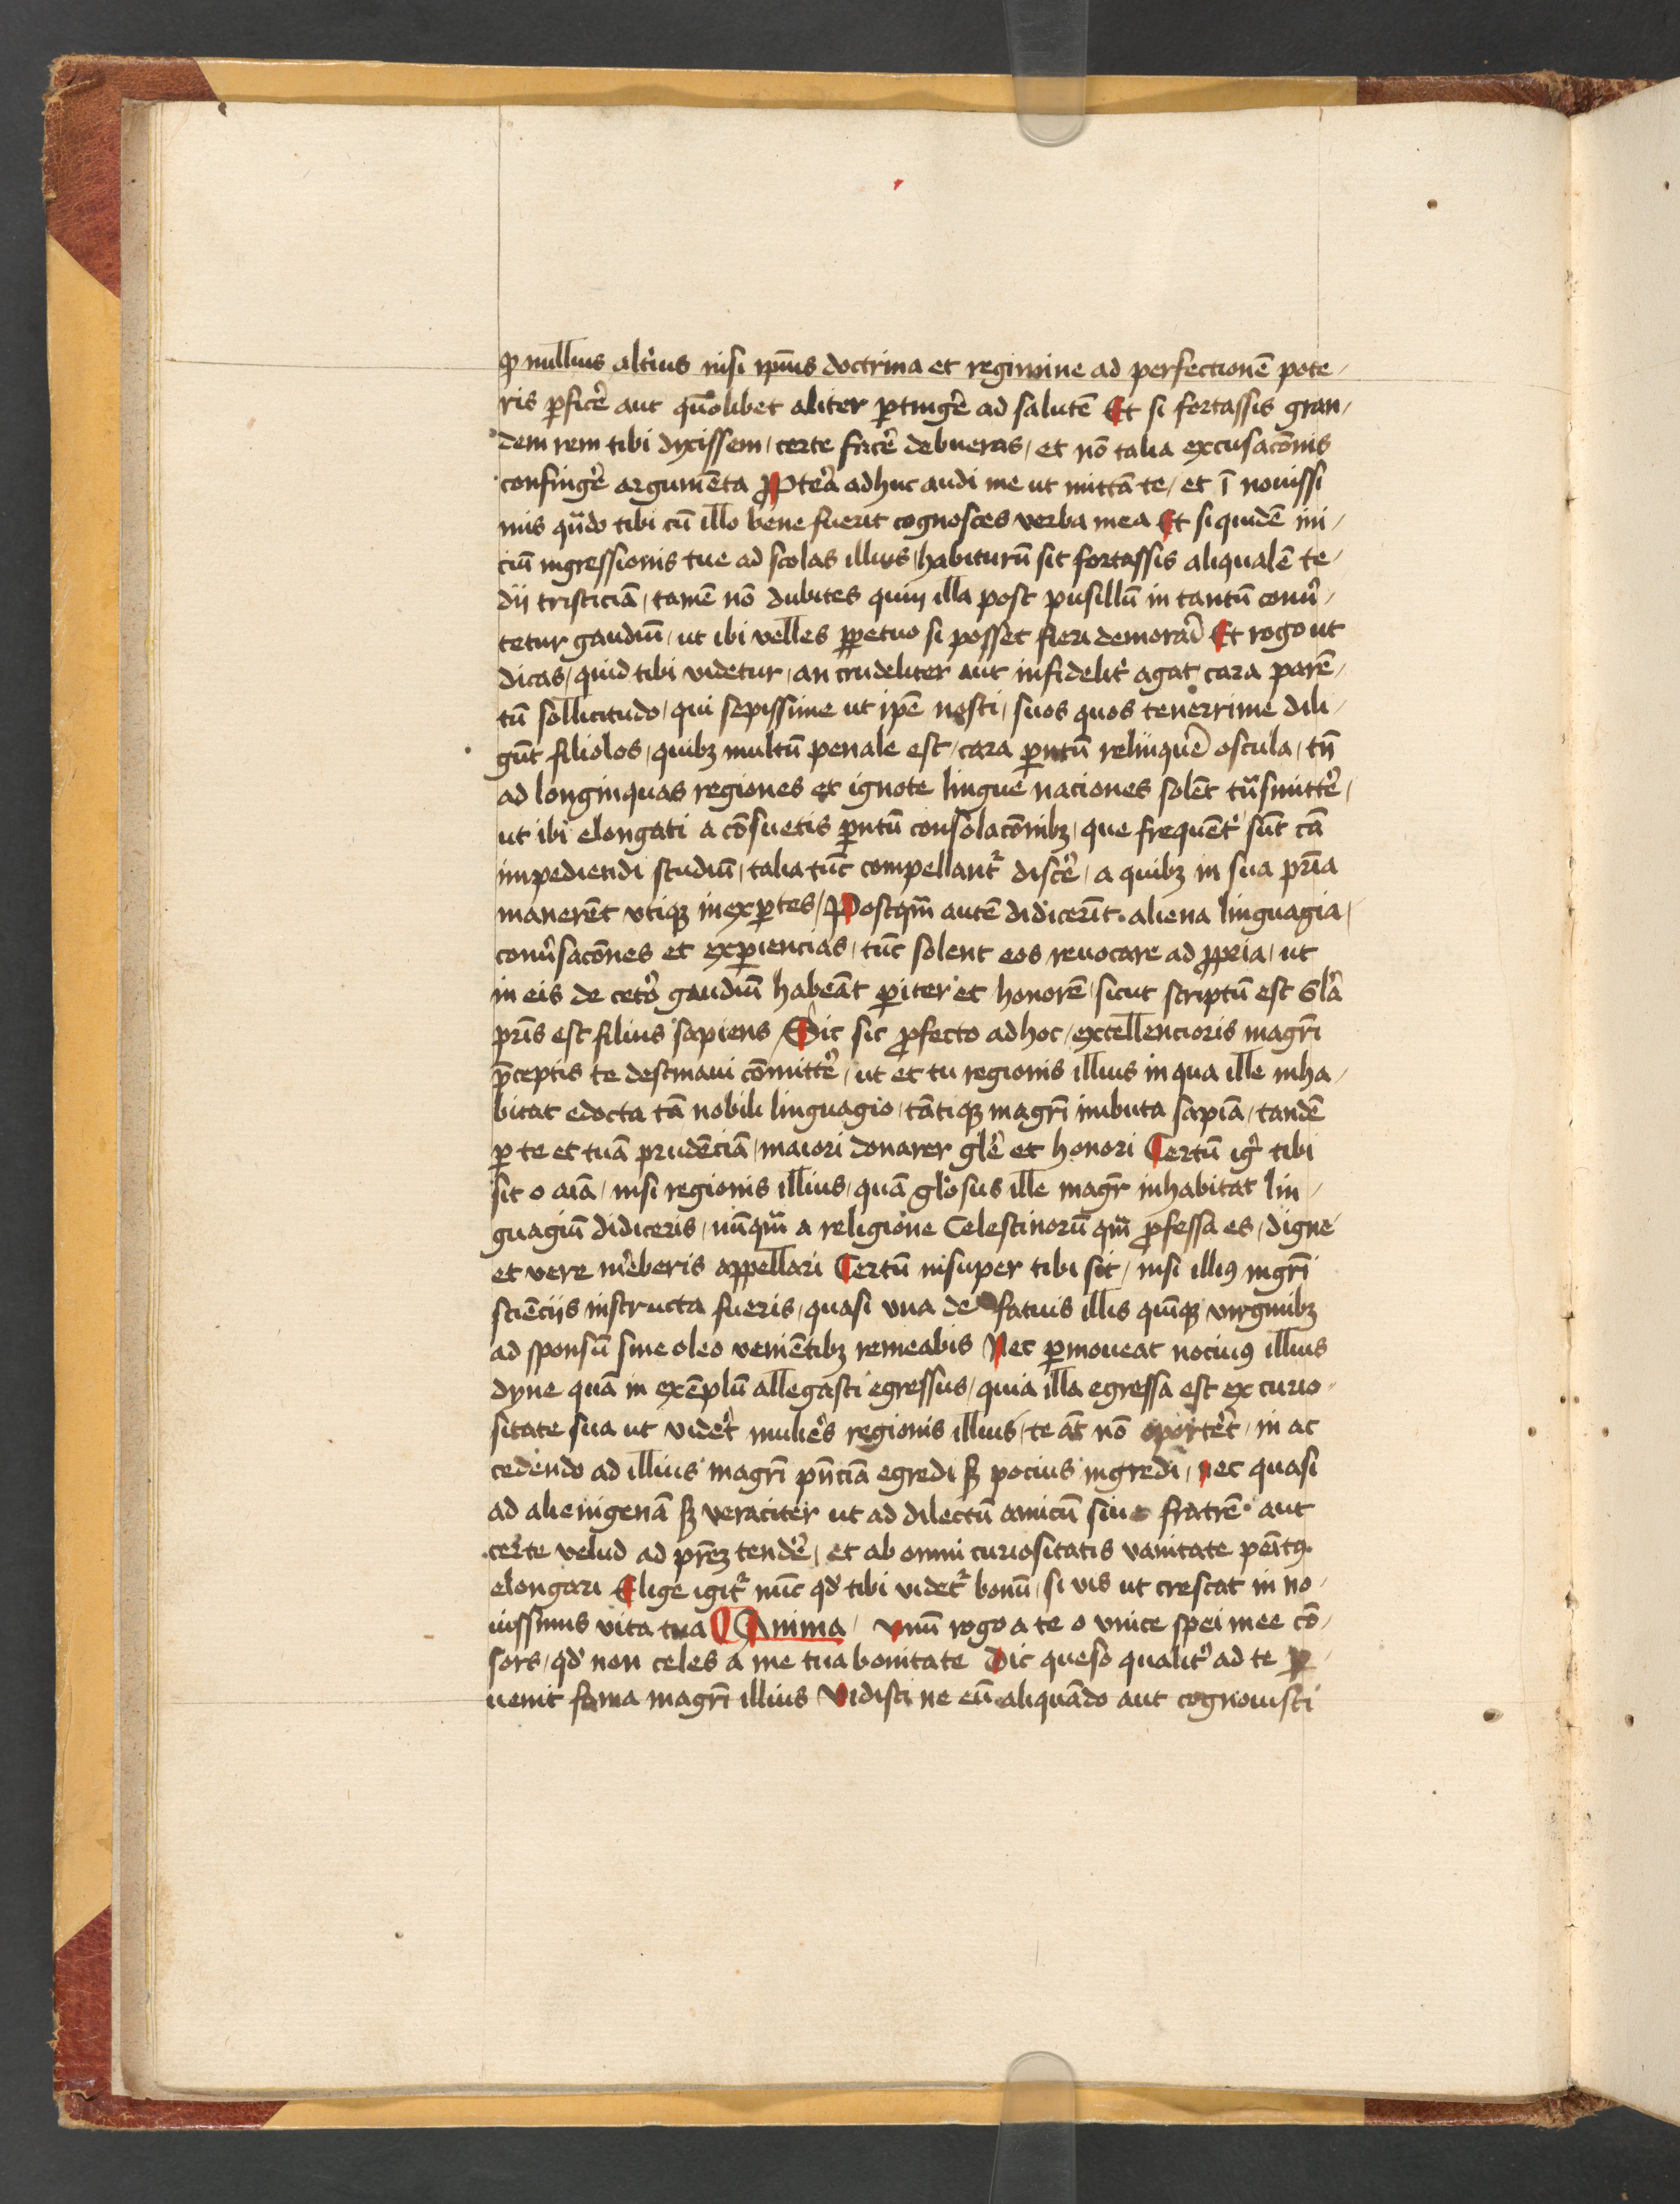 ꝙ nullius alti᷑us nisi ip̄ius doctrina et regimine ad perfectionē pote /
ris ꝑfic̄e aut quōlibet aliter ꝑtinḡe ad salutē Et si fortassis gran /
dem rem tibi dyxissem / certe fac̄e debueras / et nō talia excusacōnis
confinḡe argumēta Ppt̄ea adhuc audi me ut mittā te / et ī nouissi
mis qn̄do tibi cū illo bene fuerit cognosces verba mea Et siquidē ini /
ciū ingressionis tue ad scolas illius / habiturū sit fortassis aliqualē te /
dii tristiciā / tamē nō dubites quin illa post pusillū in tantū conu̓ /
tetur gaudiū / ut ibi velles ꝑpetuo si posset fieri demorari Et rogo ut
dicas / quid tibi videtur / an crudeliter aut infidelit̓ agat cara parē /
tū sollicitudo / qui sepissime ut ip̄e nosti / suos quos tenerrime dili /
gūt filiolos / quibꝫ multū penale est / cara ꝑntū relinqu̓e oscula / tn̄
ad longinquas regiones et ignote lingue naciones solēt tn̄smitt̓e /
ut ibi elongati a cōsuetis ꝑntū consolacōnibꝫ / que frequēt̓ sūt cā
impediendi studiū / talia tūc compellant᷑ disc̓e / a quibꝫ in sua pr̄ia
manerēt vtiqꝫ inexꝑtes / Postqm̄ autē didicerīt aliena linguagia /
conu̓sacōnes et exꝑiencias / tūc solent eos reuocare ad ꝓpria / ut
in eis de cet̓o gaudiū habeāt ꝑiter et honorē / sicut scriptū est Gl̄a
pr̄is est filius sapiens / Sic sic ꝓfecto ad hoc / excellencioris magr̄i
p̄ceptis te destinaui cōmitt̓e / ut et tu regionis illius in qua ille inha /
bitat edocta tā nobili linguagio / tātiqꝫ magr̄i imbuta sapīa / tandē
ꝑ te et tuā prudēciā / maiori donarer gl̄e et honori Certū ig̓ tibi
sit o aīa / nisi regionis illius / quā gl̄osus ille magr̄ inhabitat lin /
guagiū didiceris / nūqm̄ a religione Celestinorū qm̄ ꝓfessa es / digne
et vere m̓eberis appellari Certū insuper tibi sit / nisi illiꝰ mgr̄i
sciēciis instructa fueris / quasi vna de fatuis illis quīqꝫ virginibꝫ
ad sponsū sine oleo veniētibꝫ remeabis Nec ꝑmoueat nociuꝰ illius
dyne quā in exēplū allegasti egressus / quia illa egressa est ex curio /
sitate sua ut videt̓ muli̓es regionis illius / te āt nō oportet̓ / in ac
cedendo ad illius magr̄i pn̄ciā egredi sꝫ pocius ingredi / nec quasi
ad alienigenā sꝫ veraciter ut ad dilectū amicū siue fratrē aut
certe velud ad pr̄eꝫ tend̓e / et ab omni curiositatis vanitate penitꝰ
elongari Elige igit᷑ nūc qd̓ tibi videt᷑ bonū / si vis ut crescat in no /
uissimis vita tua Anima / Vnū rogo a te o vnice spei mee cō /
sors / qd̓ non celes a me tua bonitate Dic queso qualit̓ ad te ꝑ /
uenit fama magr̄i illius Vidisti ne eū aliquādo aut cognouisti